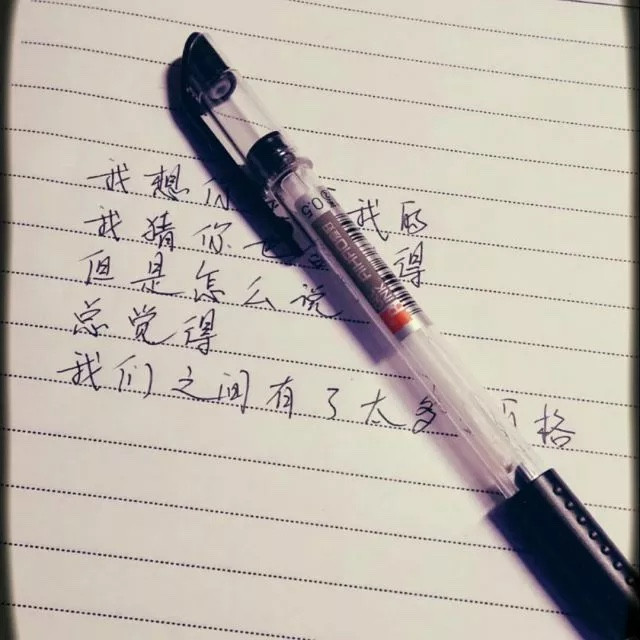 我想你 我的
我猜你也 得
但是怎么说
总觉得
我们之间有了太多 格
0.5